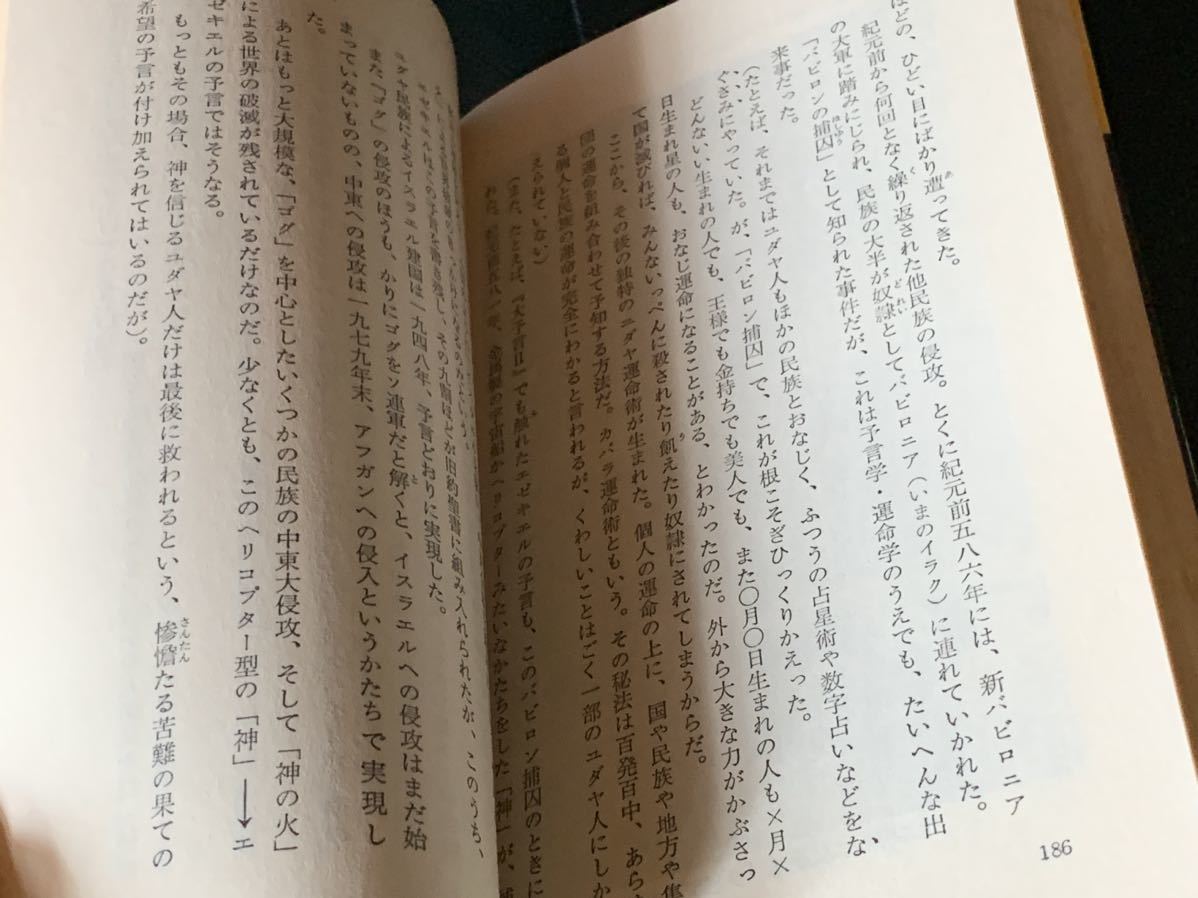 ほどの、ひどい目にばかり遭ってきた。
紀元前から何回となく繰り返された他民族の侵攻。とくに紀元前五八六年には、新バビロニア
の大軍に踏みにじられ、民族の大半が奴隷としてバビロニア（いまのイラク）に連れていかれた。
「バビロンの捕囚」として知られた事件だが、これは予言学・運命学のうえでも、たいへんな出
来事だった。
（たとえば、それまではユダヤ人もほかの民族とおなじく、ふつうの占星術や数字占いなどをな
ぐさみにやっていた。が、「バビロン捕囚」で、これが根こそぎひっくりかえった。
どんないい生まれの人でも、王様でも金持ちでも美人でも、また〇月〇日生まれの人も×月×
日生まれ星の人も、おなじ運命になることがある、とわかったのだ。外から大きな力がかぶさっ
て国が滅びれば、みんないっぺんに殺されたり飢えたり奴隷にされてしまうからだ。
ここから、その後の独特のユダヤ運命術が生まれた。個人の運命の上に、国や民族や地方や集
団の運命を組み合わせて予知する方法だ。カバラ運命術ともいう。その秘法は百発百中、あら
る個人と民族の運命が完全にわかると言われるが、くわしいことはごく一部のユダヤ人にしか
えられていない）
（また、たとえば、『大予言Ⅱ』でも触れたエゼキエルの予言も、このバビロン捕囚のときに
宇宙船かヘリコプターみたいなかたちをした「神」が、
186
エゼキエルはこの予言を書き残し、その九割ほどが旧約聖書に組み入れられたが、このうち、
ユダヤ民族によるイスラエル建国は一九四八年、予言どおりに実現した。
また「ゴグ」の侵攻のほうも、かりにゴグをソ連軍だと解くと、イスラエルへの侵攻はまだ始
まっていないものの、中東への侵攻は一九七九年末、アフガンへの侵入というかたちで実現し
た。
あとはもっと大規模な、「ゴグ」を中心としたいくつかの民族の中東大侵攻、そして「神の火」
による世界の破滅が残されているだけなのだ。少なくとも、このヘリコプター型の「神」→エ
ゼキエルの予言ではそうなる。
もっともその場合、神を信じるユダヤ人だけは最後に救われるという、惨憺たる苦難の果ての
希望の予言が付け加えられてはいるのだが）。